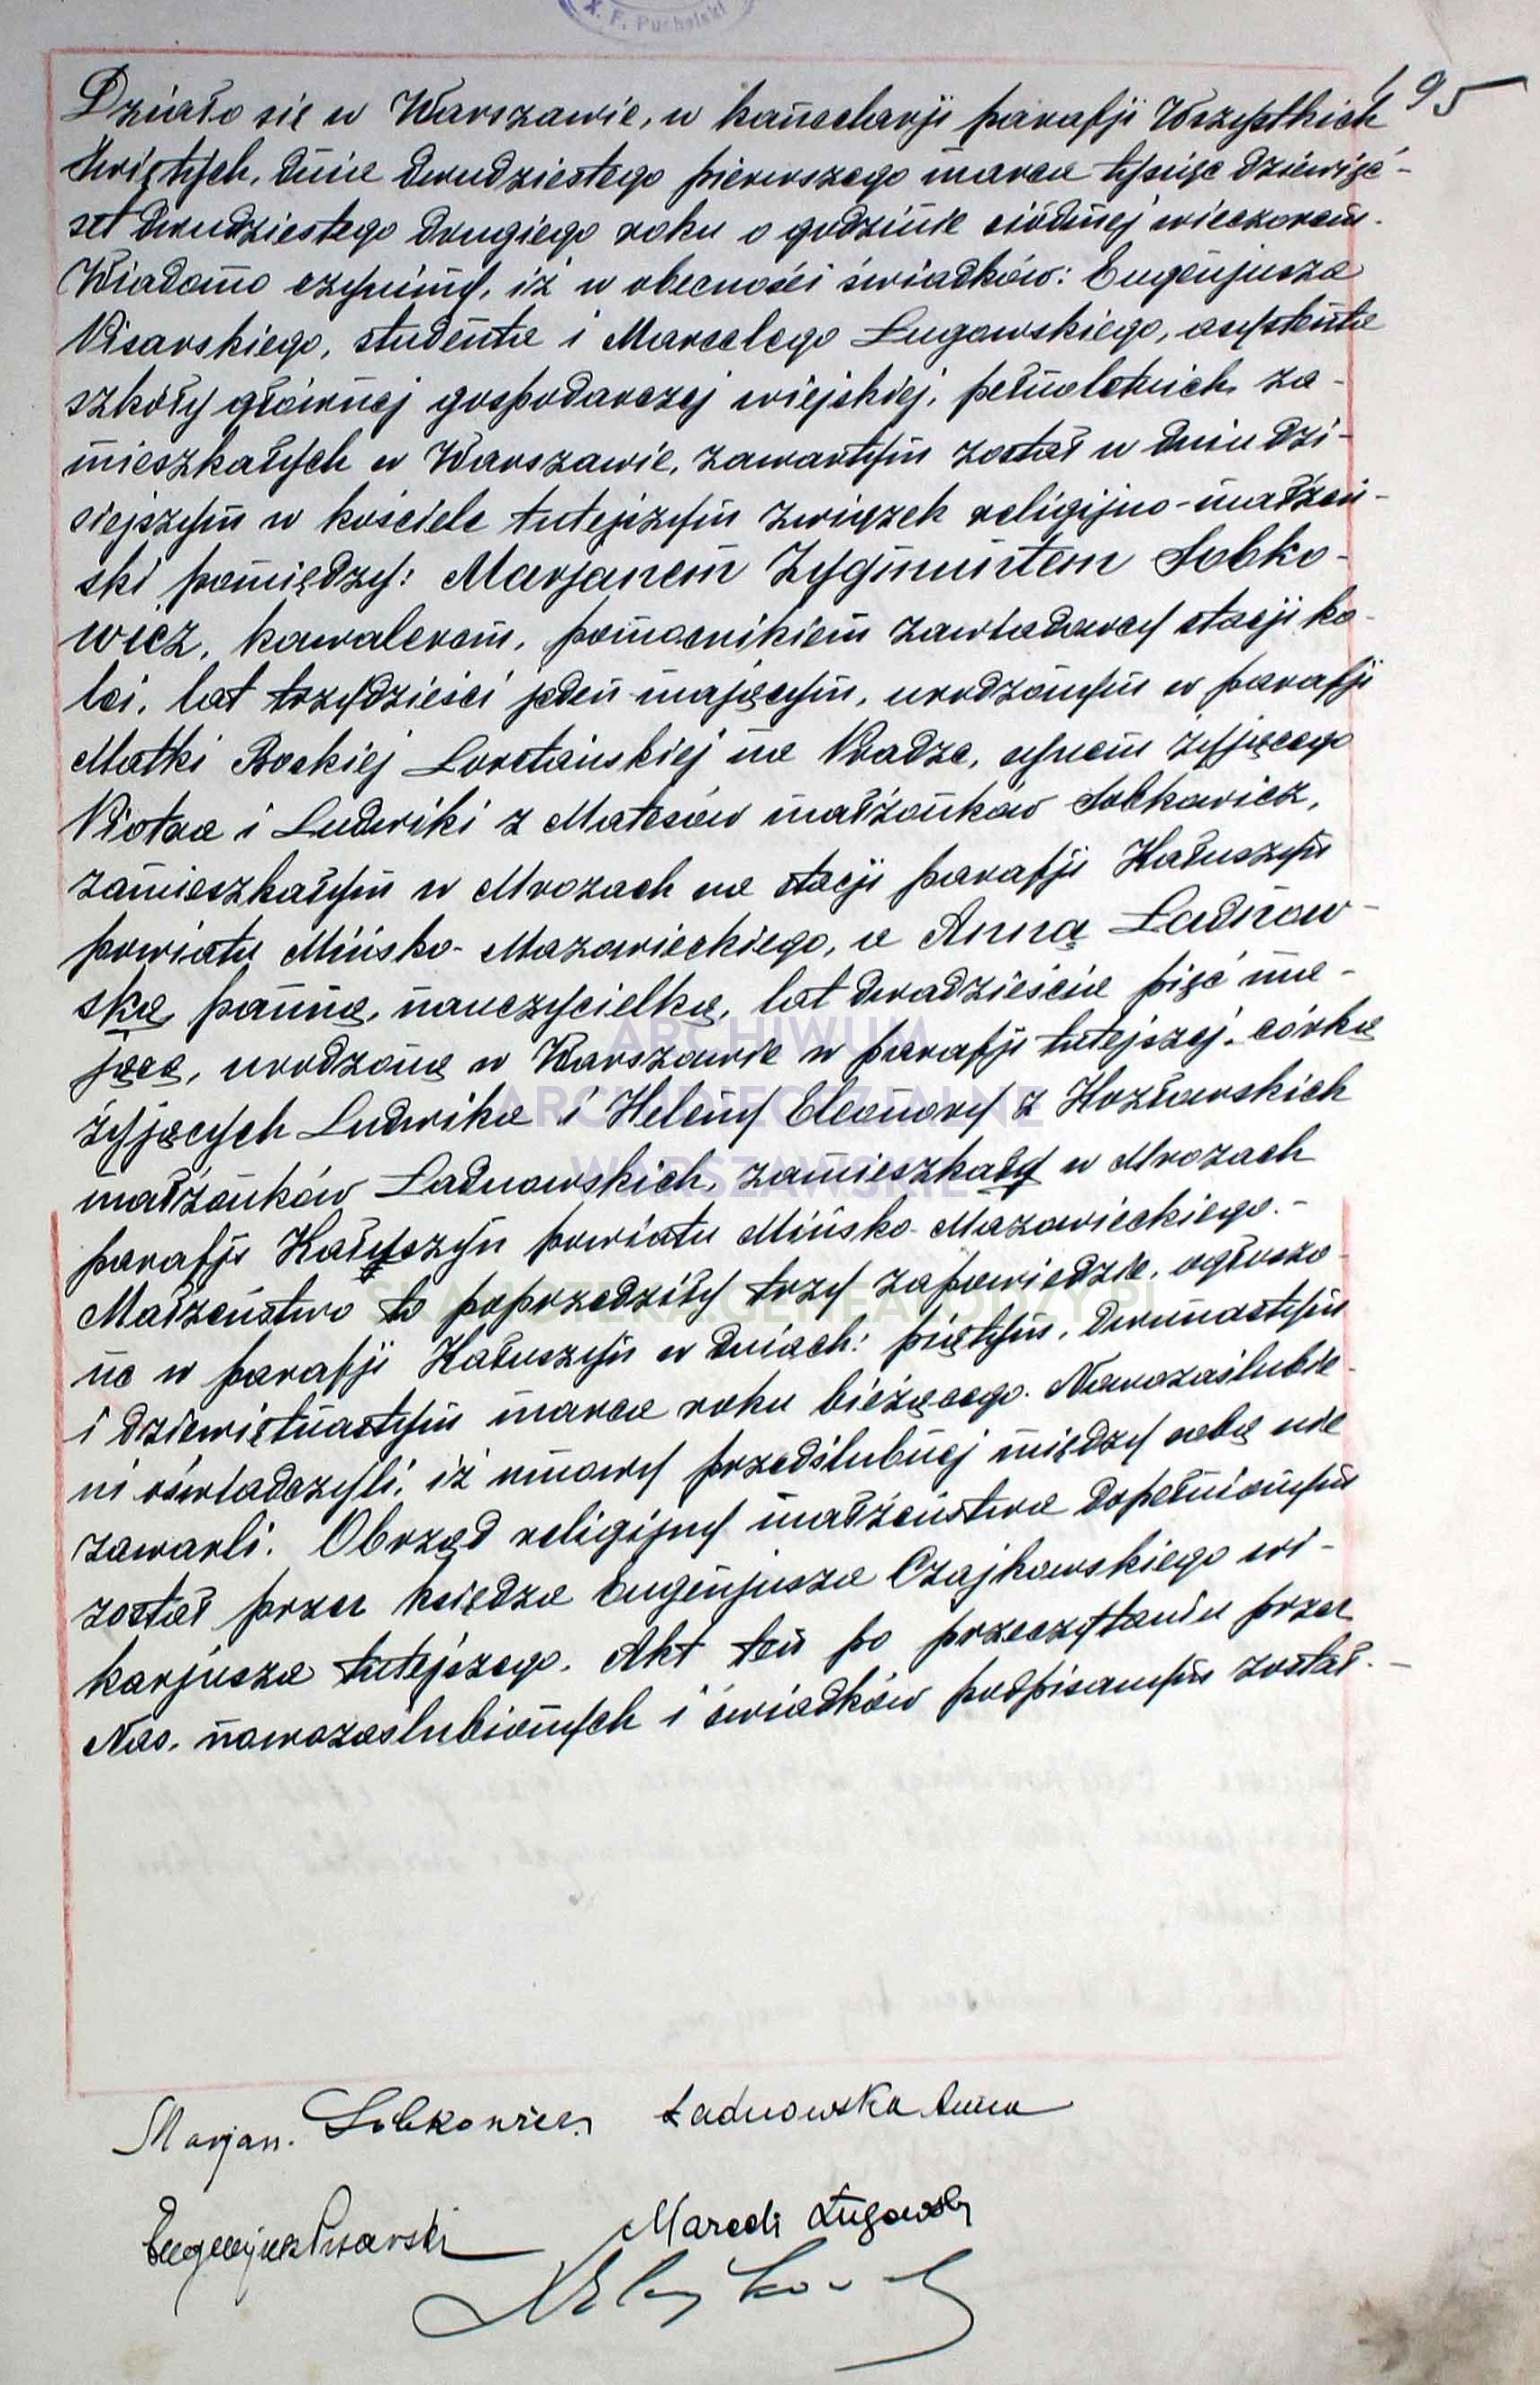 X. F. Puchalski
195
Działo się w Warszawie, w kancelarji parafji Wszystkich
Świętych, dnia dwudziestego pierwszego marca tysiąc dziewięć-
set dwudziestego drugiego roku o godzinie siódmej wieczorem.
Wiadomo czynimy, iż w obecności świadków: Eugenjusza
Pisarskiego, studenta i Marcelego Ługowskiego, asystenta
szkoły głównej gospodarczej wiejskiej, pełnoletnich za-
mieszkałych w Warszawie, zawartym został w dniu dzi-
siejszym w kościele tutejszym związek religijno-małżeń-
ski pomiędzy: Marjanem Zygmuntem Sobko-
wicz, kawalerem, pomocnikiem zawiadowcy stacji ko-
lei, lat trzydzieści jeden mającym, urodzonym w parafji
Matki Boskiej Loretańskiej na Pradze, synem żyjącego
Piotra i Ludwiki z Matesów małżonków Sobkowicz,
zamieszkałym w Mrozach na stacji parafji Kałuszyn
powiatu Mińsko-Mazowieckiego, a Anną Ładnow-
ską, panną, nauczycielką, lat dwadzieścia pięć ma-
jącą, urodzoną w Warszawie w parafji tutejszej, córką
żyjących Ludwika i Heleny Eleonory z Kozłowskich
małżonków Ładnowskich, zamieszkałą w Mrozach
parafji Kałuszyn powiatu Mińsko-Mazowieckiego.-
Małżeństwo to poprzedziły trzy zapowiedzie, ogłoszo-
ne w parafji Kałuszyn w dniach: piątym, dwunastym
i dziewiętnastym marca roku bieżącego. Nowozaślubie-
ni oświadczyli, iż umowy przedślubnej między sobą nie
zawarli. Obrząd religijny małżeństwa dopełnionym
został przez księdza Eugenjusza Czajkowskiego wi-
karjusza tutejszego. Akt ten po przeczytaniu przez
Nas, nowozaślubionych i świadków podpisanym został.-
ARCHIWUM
ARCHIDIECEZJALNE
WARSZAWSKIE
SKANOTEKA.GENEALODZY.PL
Marjan. Sobkowicz Ładnowska Anna
Eugenjusz Pisarski Marceli Ługowski